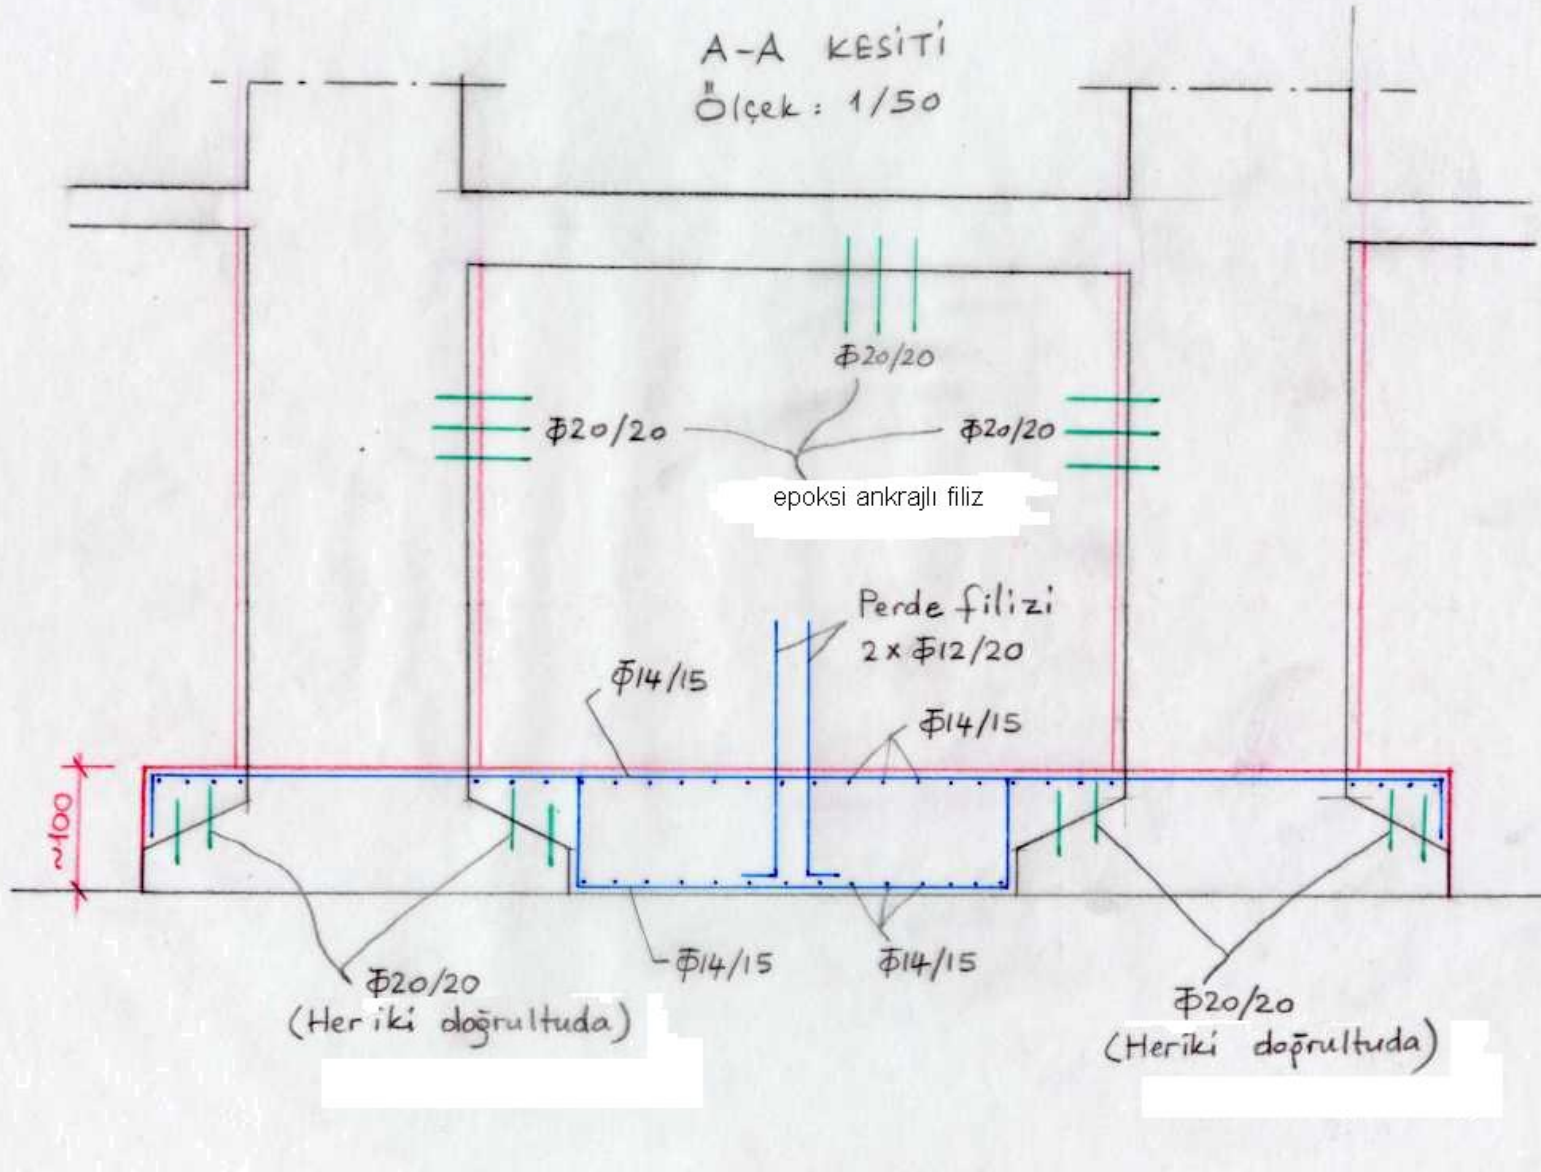 A-A KESİTİ
Ölçek: 1/50
Φ20/20
Φ20/20
Φ20/20
epoksi ankrajlı filiz
Perde filizi
2x Φ12/20
Φ14/15
Φ14/15
~100
Φ14/15
Φ14/15
Φ20/20
(Her iki doğrultuda)
Φ20/20
(Her iki doğrultuda)